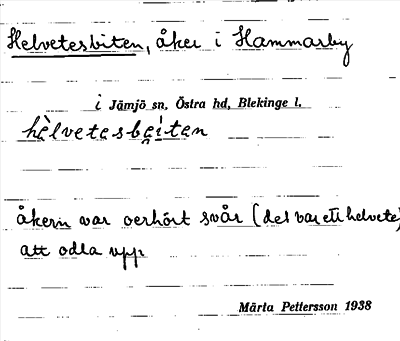 Helvetesbiten, åker i Hammarby
i Jämjö sn. Östra hd, Blekinge l.
hèlvetesbei̯ten
åkern var oerhört svår (det var ett helvete)
att odla upp
Märta Pettersson 1938